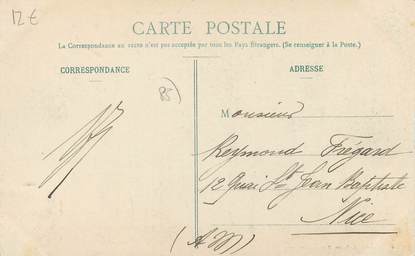 12€
CARTE POSTALE
La Correspondance au recto n'est pas acceptée par tous les Pays Étrangers. (Se renseigner à la Poste.)
CORRESPONDANCE
ADRESSE
Monsieur
Reymond Frégard
12 Quai St Jean Baptiste
Nice
(AM)